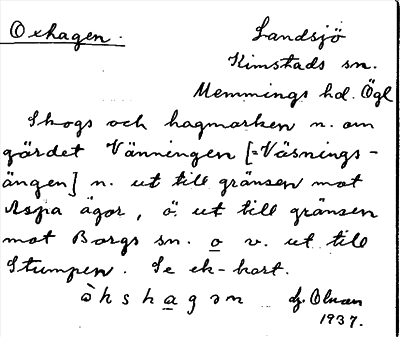 Oxhagen.
Landsjö
Kimstads sn.
Memmings hd. Ögl
Skogs och hagmarken n. om
gärdet Vänningen [=Väsnings-
ängen] n. ut till gränsen mot
Aspa ägor, ö. ut till gränsen
mot Borgs sn. o v. ut till
Stumpen. Se ek-kart.
òkshagən
1937.